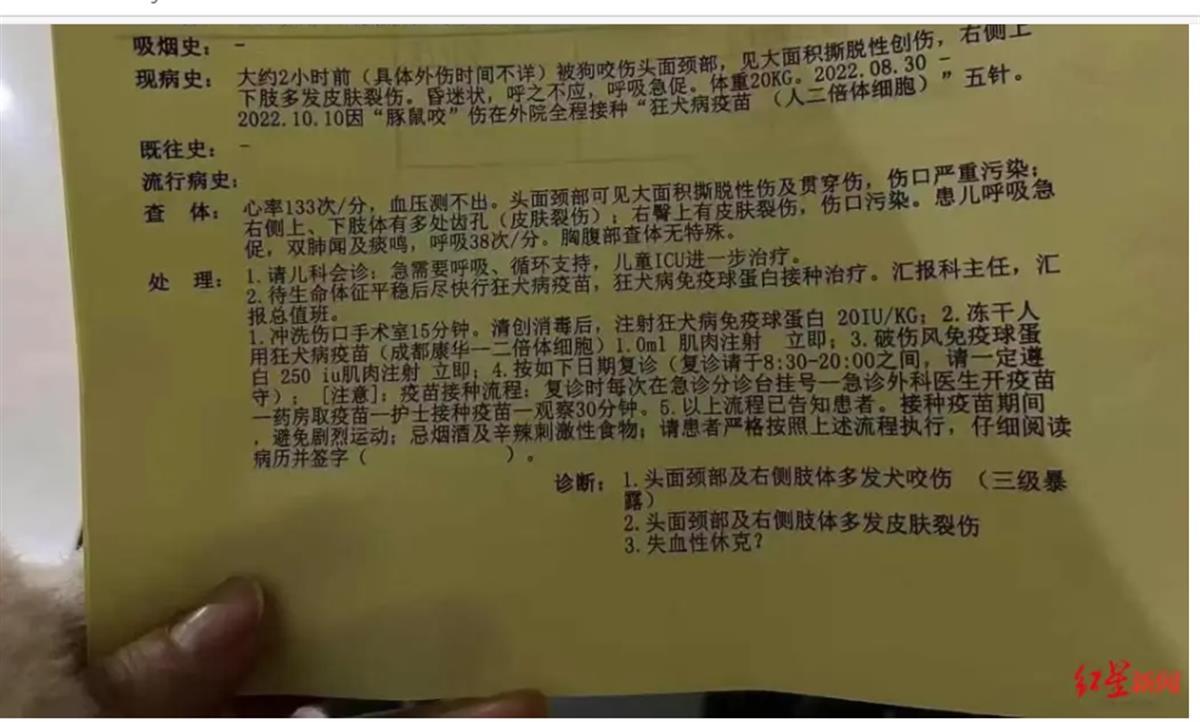 吸烟史: -
现病史: 大约2小时前（具体外伤时间不详）被狗咬伤头面颈部，见大面积撕脱性创伤，右侧上
下肢多发皮肤裂伤。昏迷状，呼之不应，呼吸急促。体重20KG。2022.08.30 -
2022.10.10因“豚鼠咬”伤在外院全程接种“狂犬病疫苗 （人二倍体细胞）”五针。
既往史: -
流行病史:
查 体: 心率133次/分，血压测不出。头面颈部可见大面积撕脱性伤及贯穿伤，伤口严重污染；
右侧上、下肢体有多处齿孔（皮肤裂伤）；右臀上有皮肤裂伤，伤口污染。患儿呼吸急
促，双肺闻及痰鸣，呼吸38次/分。胸腹部查体无特殊。
处 理: 1.请儿科会诊：急需要呼吸、循环支持，儿童ICU进一步治疗。
2.待生命体征平稳后尽快行狂犬病疫苗，狂犬病免疫球蛋白接种治疗。汇报科主任，汇
报总值班。
1.冲洗伤口手术室15分钟。清创消毒后，注射狂犬病免疫球蛋白 20IU/KG；2.冻干人
用狂犬病疫苗（成都康华一二倍体细胞）1.0ml 肌肉注射 立即；3.破伤风免疫球蛋
白 250 iu肌肉注射 立即；4.按如下日期复诊（复诊请于8:30-20:00之间，请一定遵
守）； [注意]：疫苗接种流程：复诊时每次在急诊分诊台挂号一急诊外科医生开疫苗
一药房取疫苗一护士接种疫苗一观察30分钟。5.以上流程已告知患者。接种疫苗期间
，避免剧烈运动；忌烟酒及辛辣刺激性食物；请患者严格按照上述流程执行，仔细阅读
病历并签字（ ）。
诊断: 1.头面颈部及右侧肢体多发犬咬伤 （三级暴
露）
2.头面颈部及右侧肢体多发皮肤裂伤
3.失血性休克？
红星新闻